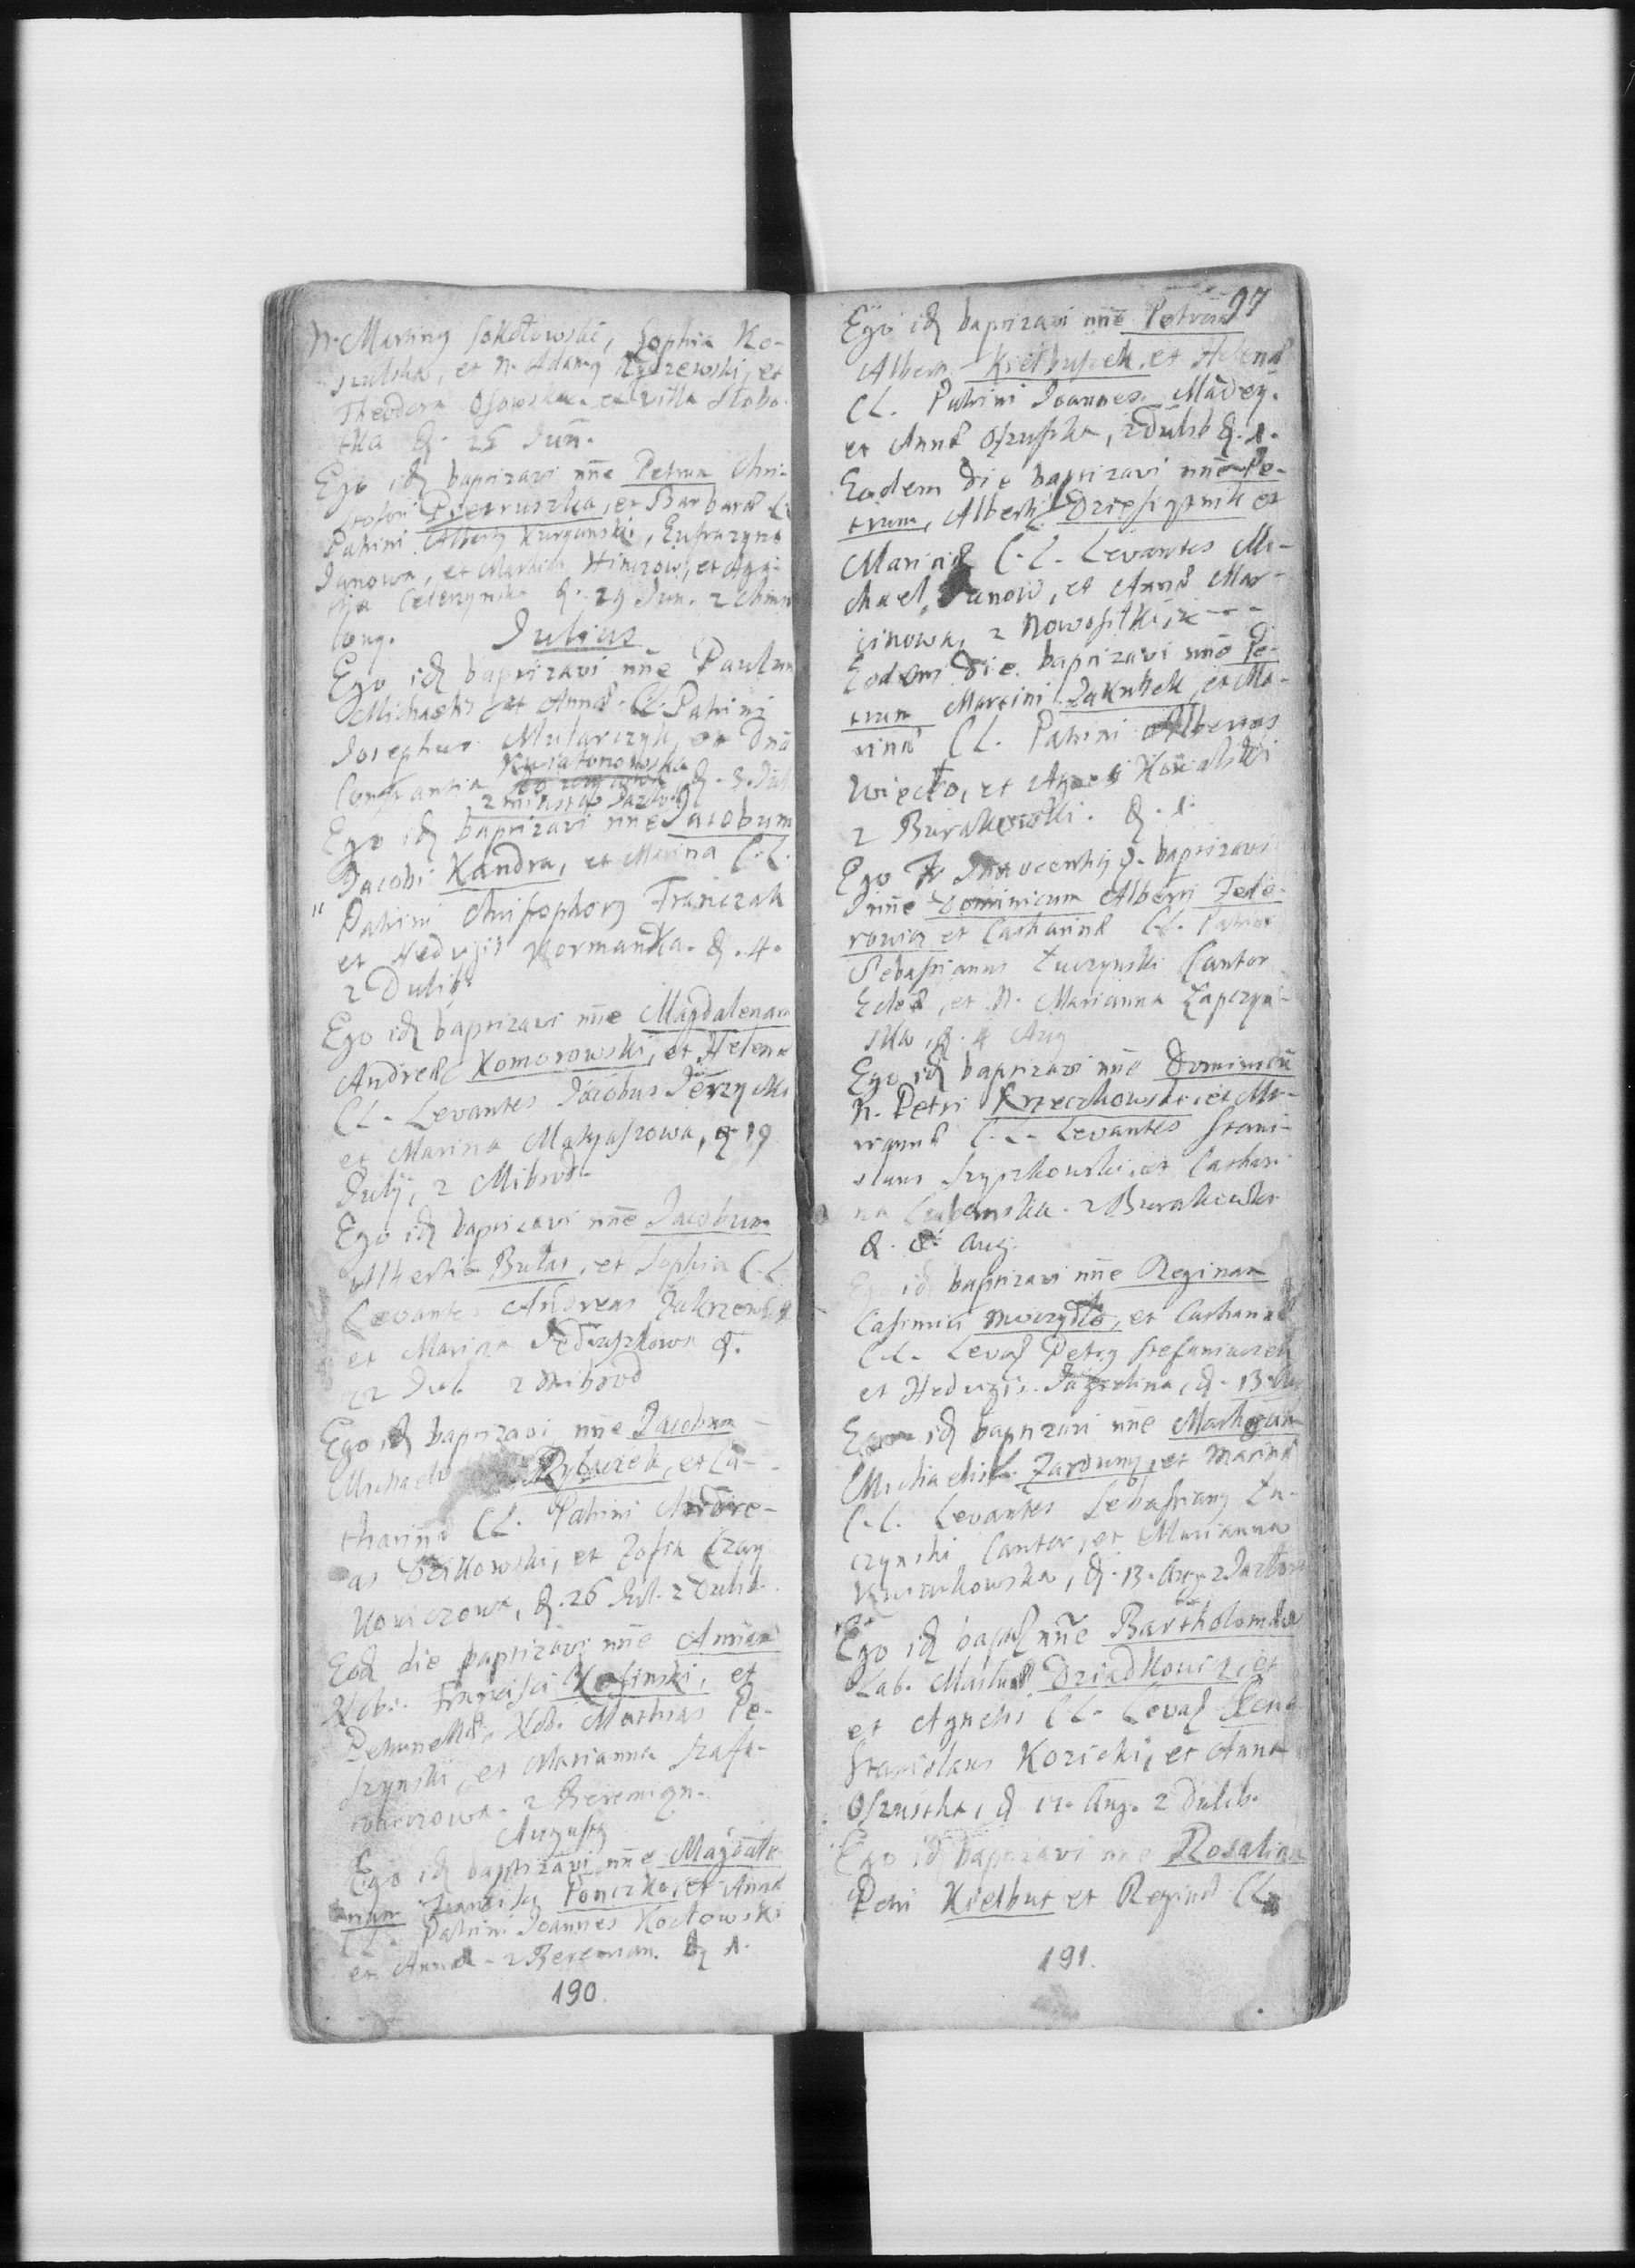 N. Martin9 Sokołowski, Sophia Ko-
szulska, et N. Adam9 et
Theodora Osowska ex villa Słobo-
tka d. 25 Jun.
Ego id baptizavi nne Petrum Chri-
stofori Pietruszka, et Barbarae C.L.
Patrini Albert9 Kurzynski, Eufrazyna
Janowa, et Mathias Hinczow, et Aga-
ta d. 29 Jun.
Julius
Ego id baptizavi nne Paulum
Michaelis et Annae C.L. Patrini
Josephus Mularczyk, et Dna
Constantia Kwiatonowska d. 3 Jul
z miasta
Ego id baptizavi nne Jacobum
Jacobi Kandra, et Marina C.L.
" Patrini Christophor9 Franczak
et Hedvigis Normanka. d. 4.
z Dulib.
Ego id baptizavi nne Magdalenam
Andreae Komorowski, et Helenae
C.L. Levantes Jacobus Jerzycki
et Marina Matyaszowa, d. 19
Julij, z Mibrod.
Ego id baptizavi nne Jacobum
Alberti Bułat, et Sophia C.L.
Levantes Andreas Zakrzewski
et Marina Jedruszkowa d.
22 Jul. z Mibrod
Ego id baptizavi nne Jacobum
Michaelis Rybaczek, et Ca-
tharinae C.L. Patrini Andre-
as Dzikowski, et Zofia Czay
kowiczowa, d. 26 Jul. z Dulib.
Eod die baptizavi nne Annam
Nob. Francisci Kosinski, et
Petrunellae Nob. Mathias Pe-
szynski, et Marianna
z Beremian.
August9
Ego id baptizavi nne Magdale-
nam Francisci Ponczka, et Anna
C.L. Patrini Joannes Kozłowski
et Anna - z Beremian. d. 1.
190.
97
Ego id baptizavi nne Petrum
Alberti Kiełbuszek, et Helenae
C.L. Patrini Joannes Madey.
et Anna Oszustka, z Dulib d. 1.
Eodem die baptizavi nne Pe-
trum, Alberti Dziesigtnik et
Marinae C.L. Levantes Mi-
chael Janow, et Anna Mar-
cinowa, z Nowosiłki, - - -
Eodem die baptizavi nne Pe-
trum Marcini Jakubek, et Ma-
rinae C.L. Patrini Albertus
Więcko, et Agnes Kowalski
z Burakowki. d. 1.
Ego Fr Innocenti9 P. baptizavi
nne Dominicum Alberti Fede-
rowicz et Catharinae C.L. Patrini
Sebastianus Łuczynski Cantor
Eclae, et N. Marianna Łapczyn-
ska, d. 4 Aug
Ego id baptizavi nne Dominicu
N. Petri Krzeczkowski, et Ma-
riannae C.L. Levantes Stani-
slaus Szyszkowski, et Cathari-
na z Burakowka
d. 8. Aug.
Ego id baptizavi nne Reginam
Casimiri Muczydło, et Catharinae
C.L. Levas Petr9 Stefaniuczek
et Hedvigis d. 13. Au
Ego id baptizavi nne Matheum
Michaelis Zardumy, et Marinae
C.C. Levantes Sebastian9 Łu-
czynski Cantor, et Marianna
Kwiatkowska, d. 13. Aug. z
Ego id bapas nne Bartholomaeu
Lab. Matheae Dziadkowicz, et
et Agnetis C.L. Levas
Stanislaus Kozicki, et Anna
Oszustka, d 17. Aug. z Dulib.
Ego id baptizavi nne Rosalina
Petri Kiełbut et Reginae C.L.
191.